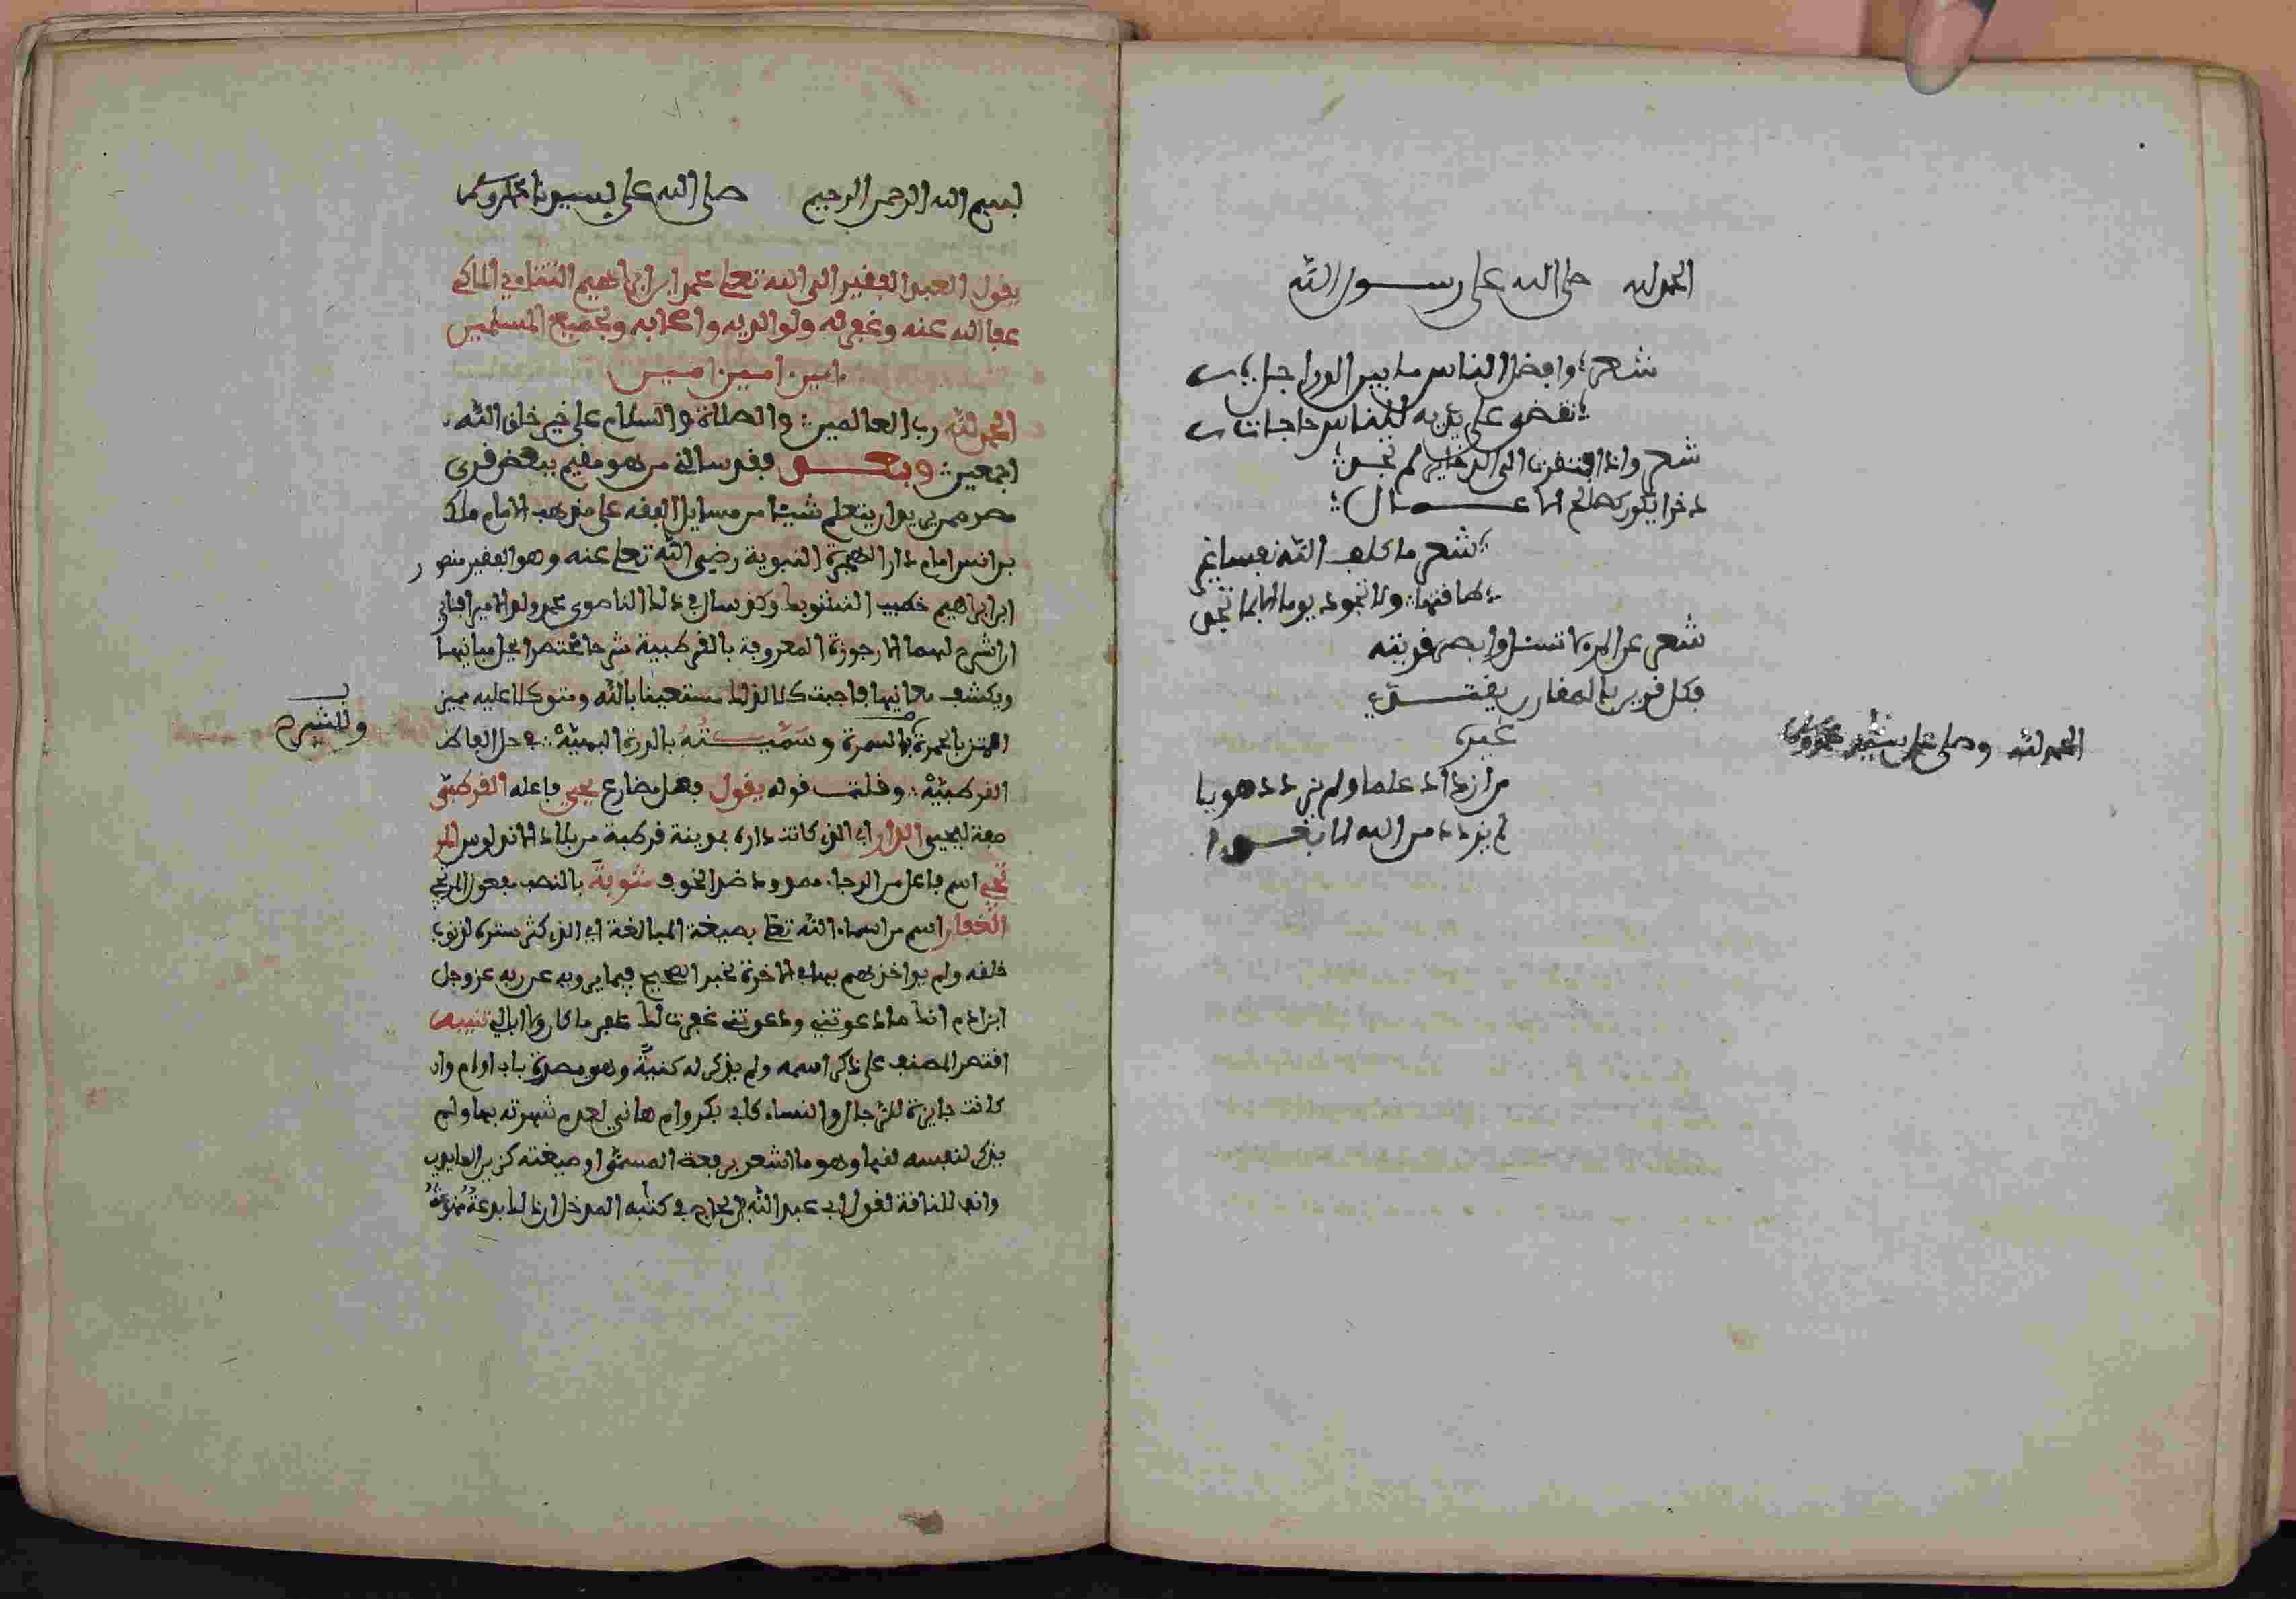 الحمد لله صلى الله على رسول الله
شعر وافضل الناس ما بين الورا جل
تقضى على يديه للناس حاجات
شعر واذا افتقرت الى الذخاير لم تجد
ذخرا يكون كصالح الاعمال
شعر ما كلف الله نفسا غير
طاقتها ولا تجود يد الا بما تجد
شعر عن المرء لا تسئل وابصر قرينه
فكل قرين بالمقارن يقتدي
غيره
من ازداد علما ولم يزدد هديا
لم يزدد من الله الا بعدا
الحمد لله وصلى على سيدنا محمد
بسم الله الرحمن الرحيم صلى الله على سيدنا محمد
يقول العبد الفقير الى الله تعلى محمد ابن ابراهيم التتاءي المالكي
عفا الله عنه وغفر له ولوالديه واصحابه ولجميع المسلمين
امين امين امين
الحمد لله رب العالمين والصلاة والسلام على خير خلق الله
اجمعين وبعد فقد سالني من هو مقيم ببعض قرى
مصر ممن يريد ان يتعلم شيئا من مسايل الفقه على مذهب الامام ملك
بن انس امام دار الهجرة النبوية رضي الله تعلى عنه وهو الفقير منصور
ابن ابراهيم خطيب وكذ سال في ذلك محمد ولد الامير
ان اشرح لهما الارجوزة المعروفة بالقرطبية شرحا مختصرا يحل مبانيها
ويكشف معانيها فاجبت لذلك مستعينا بالله ومتوكلا عليه مميز
المتن بالحمرة بالسمرة وسميته بالدرة البهية في حل الفاظ
وللشرح
القرطبية وقلت قوله يقول فعل مضارع يحيى فاعله القرطبي
صفة ليحيى الدار اي الذي كانت داره بمدينة قرطبة من بلاد الاندلوس المر
تجي اسم فاعل من الرجاء ممدود ضد الخوف مثوبة بالنصب مفعول المرتجي
الغفار اسم من اسماء الله تعلى بصيغة المبالغة اي الذي كثر ستره لذنوب
خلقه ولم يواخذهم بها في الاخرة لخبر الصحيح فيما يرويه عن ربه عز وجل
ابن ادم انك ما دعوتني ورجوتني غفرت لك على ما كان ولا ابالي تنبيه
اقتصر المصنف على ذكر اسمه ولم يذكر له كنية وهو مصدرة باب او ام وان
كانت جايزة للرجال والنساء كابي بكر وام هاني لعدم شهرته بها ولم
يذكر لنفسه لقبا وهو ما اشعر برفعة المسمى او صيغته كزين العابدين
وانف الناقة لقول ابي عبد الله ابن الحاج في كتابه المدخل ان ذلك بدعة